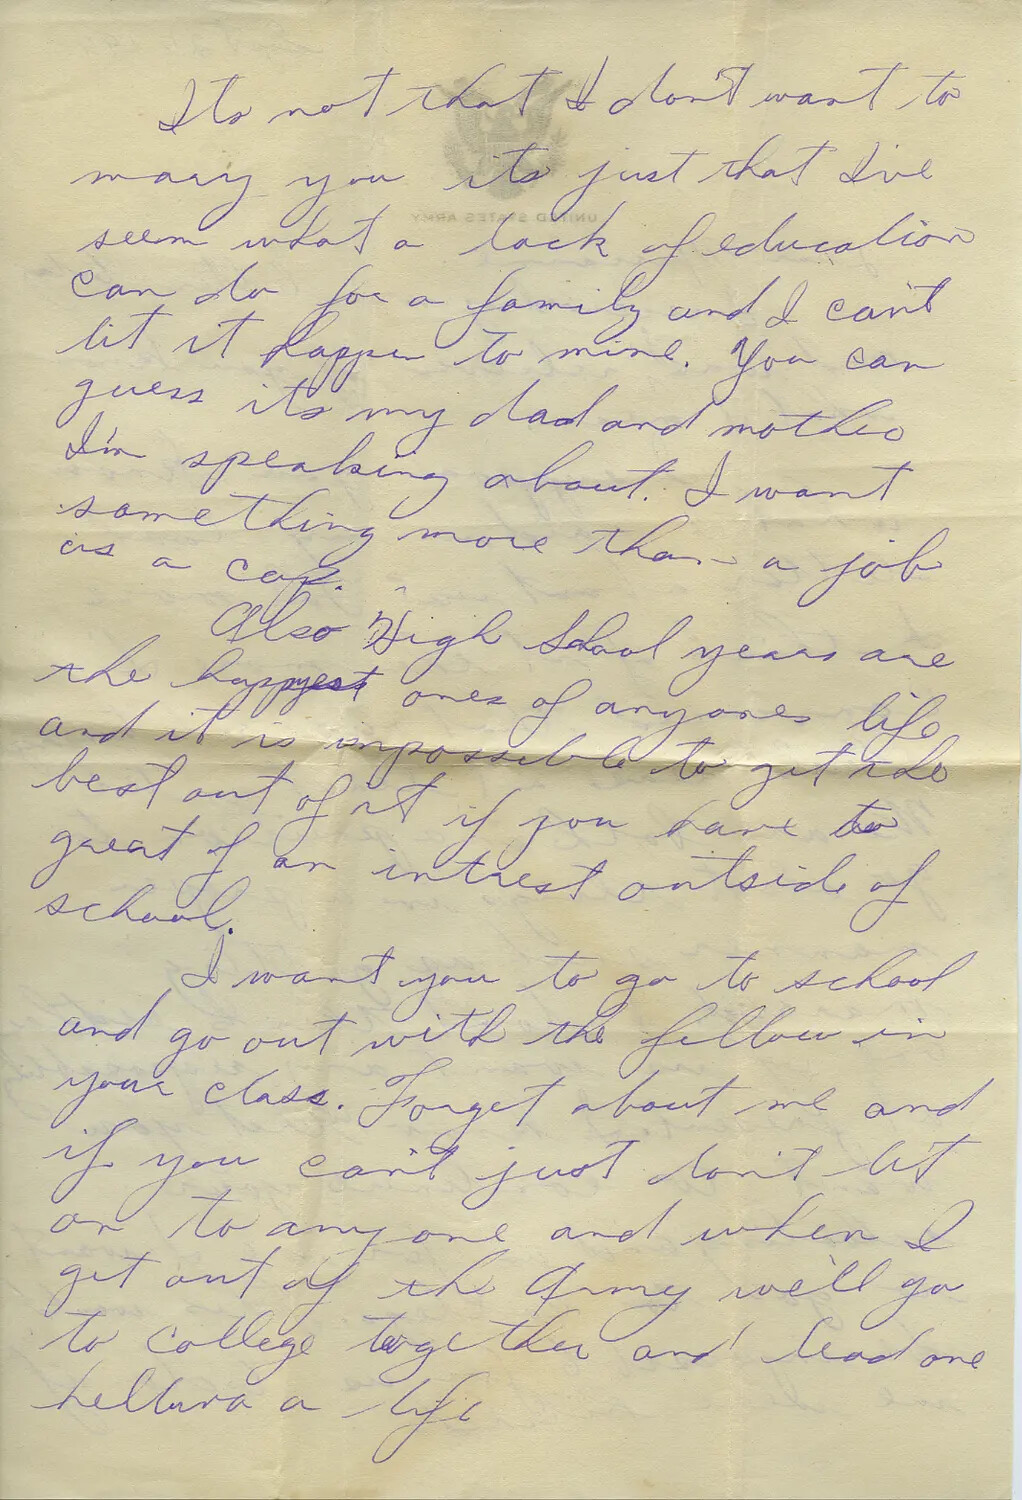 Its not that I don't want to
marry you its just that I've
seem what a lack of education
can do for a family and I can't
let it happen to mine. You can
guess its my dad and mother
I'm speaking about. I want
something more than a job
as a cop.
Also High School years are
the happyest ones of anyones life
and it is impossible to get the
best out of it if you have to
great of an intrest outside of
school.
I want you to go to school
and go out with the fellow in
your class. Forget about me and
if you can't just don't let
on to anyone and when I
get out of the Army we'll go
to college together and lead one
helluva a life
UNITED STATES ARMY